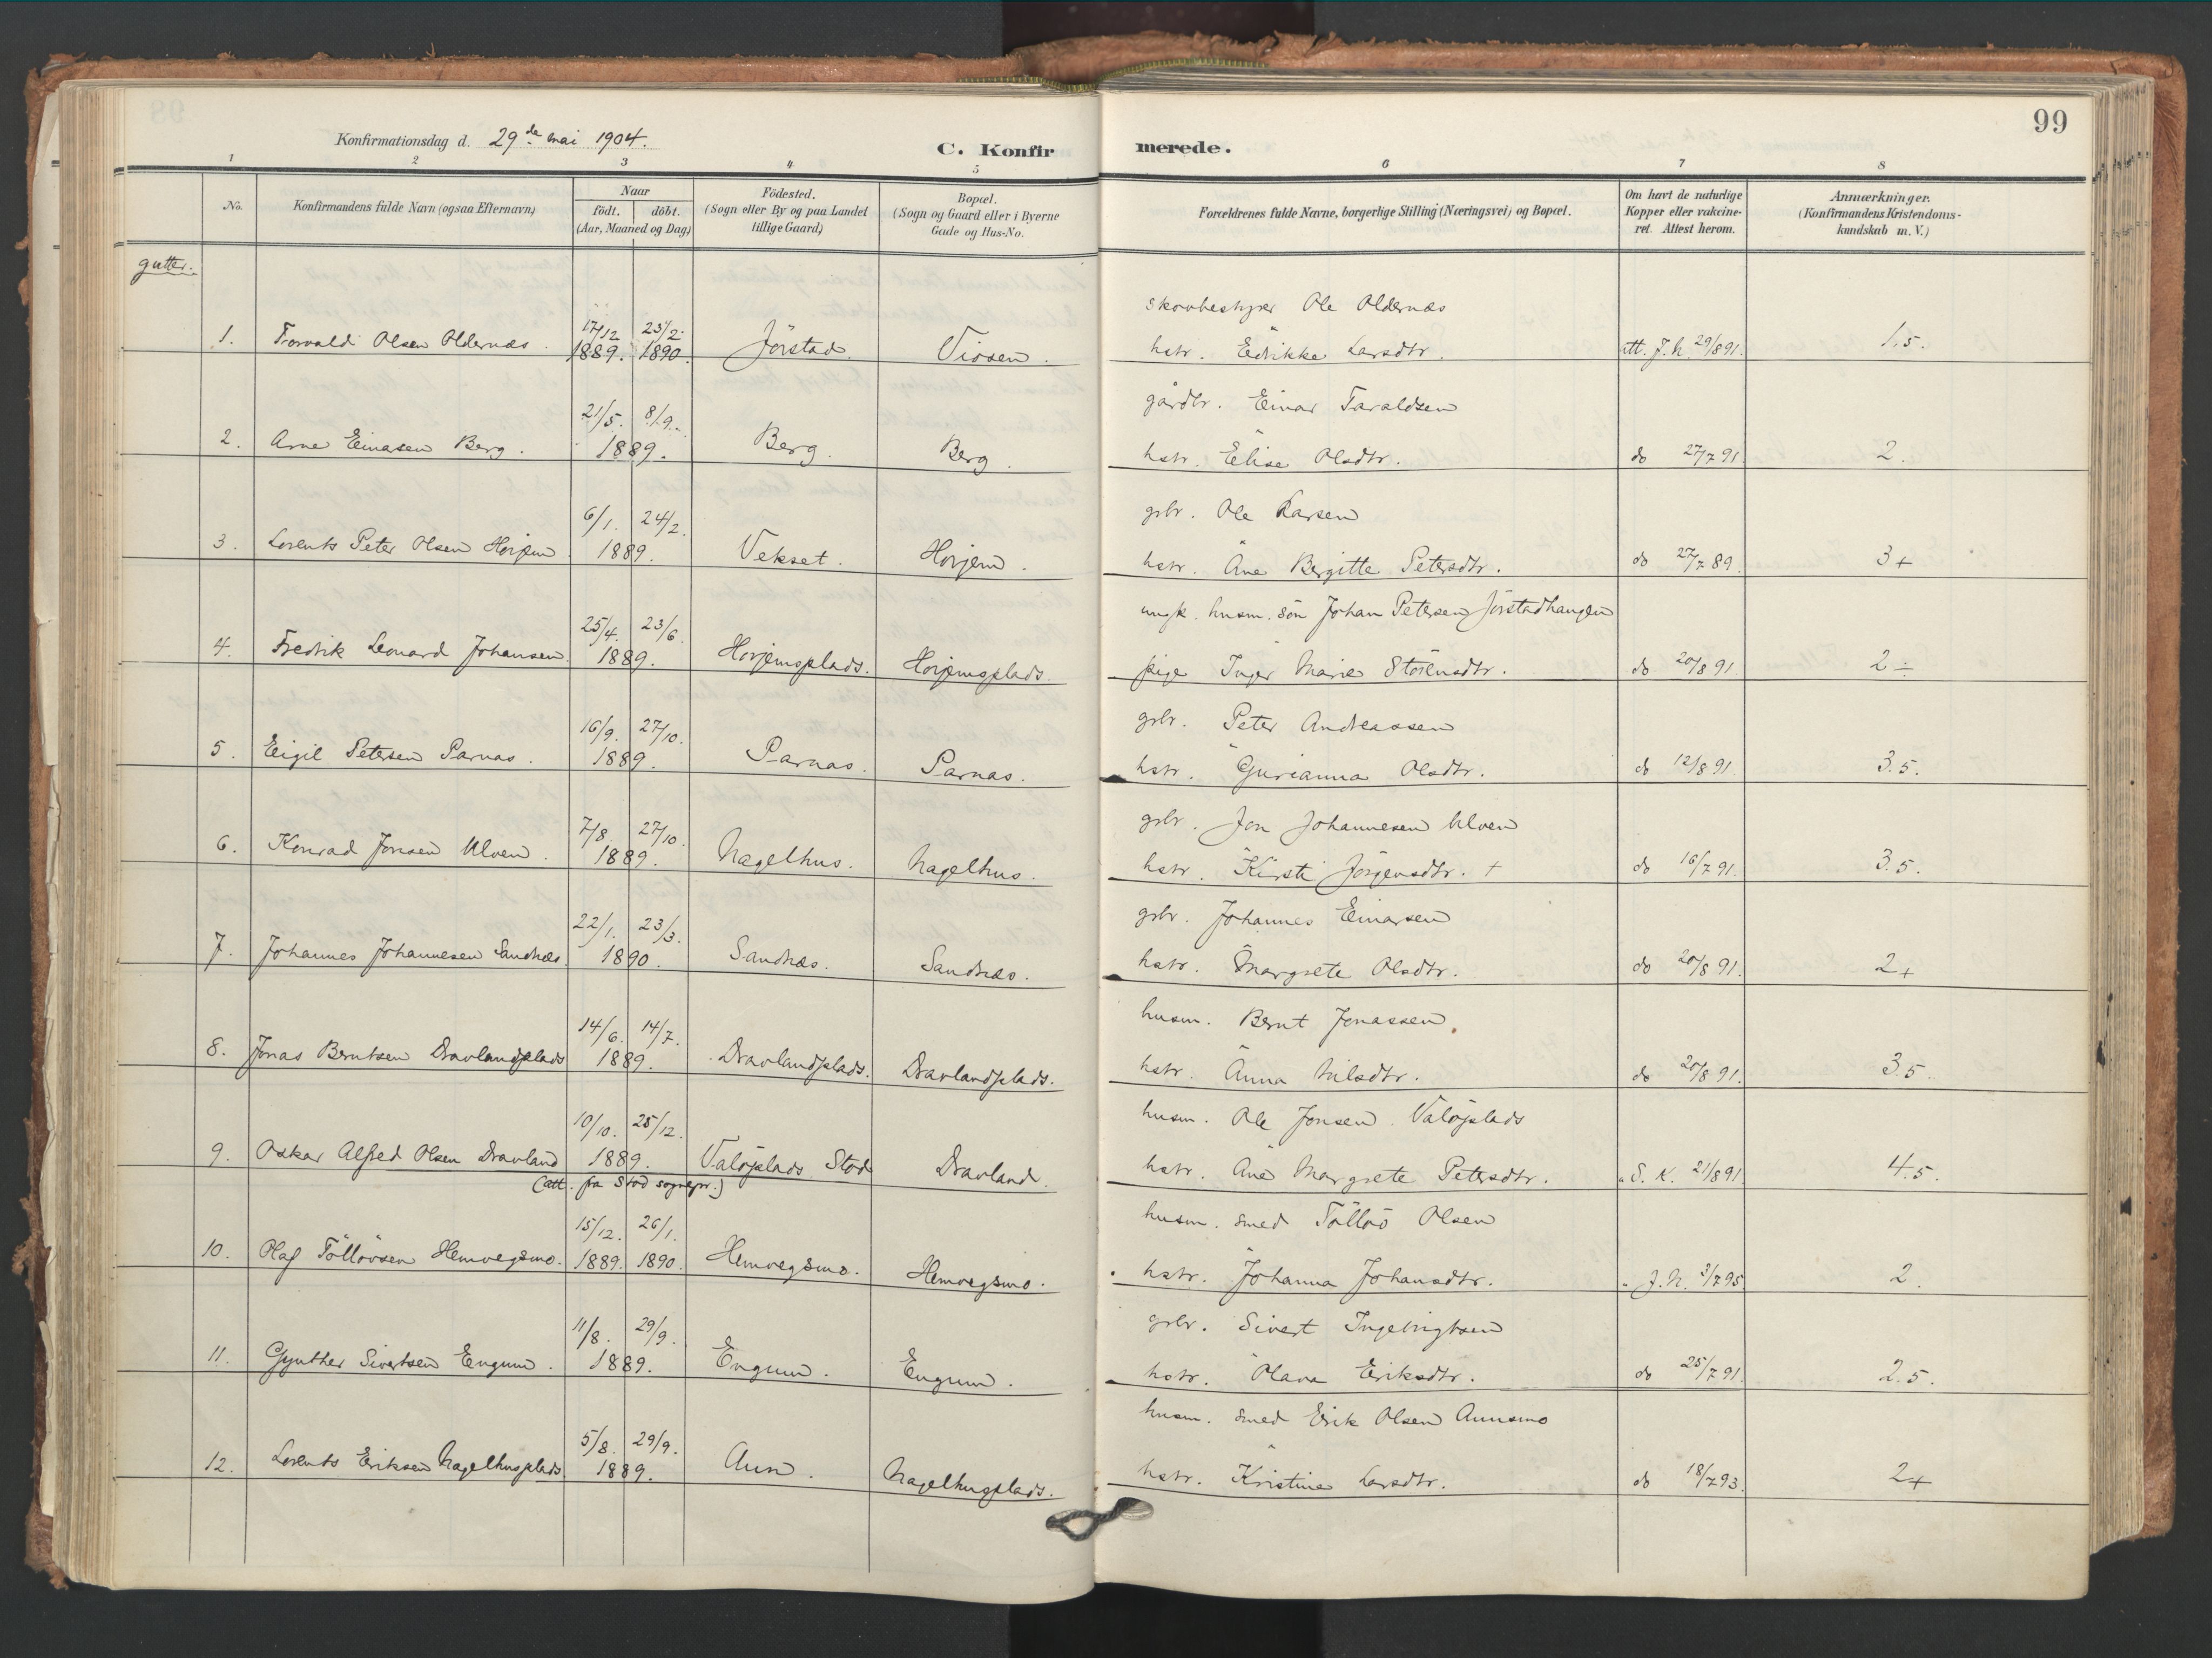 99
Konfirmationsdag d. 29de mai 1904.
C. Konfirmerede.
1 2 3 4 5 6 7 8
No.
Konfirmandens fulde Navn (ogsaa Efternavn)
Naar
födt. döbt.
(Aar, Maaned og Dag)
Födested.
(Sogn eller By og paa Landet
tillige Gaard)
Bopæl.
(Sogn og Gaard eller i Byerne
Gade og Hus-No.
Forældrenes fulde Navne, borgerlige Stilling (Næringsvei) og Bopæl.
Om havt de naturlige
Kopper eller vakcine-
ret. Attest herom.
Anmærkninger.
(Konfirmandens Kristendoms-
kundskab m. V.)
gutter.
skovbestyrer Ole Oldernæs
17/12 23/2
1. Torvald Olsen Oldernæs. 1889. 1890. Jörstad. Viosen. hstr. Edrikke Larsdtr. att. J.N. 29/8 91. 1.5.
gårdbr. Einar Taraldsen
21/5. 8/9.
2. Arne Einarsen Berg. 1889. Berg. Berg. hstr. Elise Olsdtr. do 27/7 91. 2.
grbr. Ole Larsen
6/1. 24/2.
3. Lorents Peter Olsen Horjem 1889. Vekset. Horjem. hstr. Ane Bergitte Petersdtr. do 27/7 89. 3+
ungk. husm. sön Johan Petersen Jörstadhaugen
25/4. 23/6.
4. Fredrik Leonard Johansen. 1889. Horjemsplads. Horjemsplads. pige Inger Marie Störensdtr. do 20/8 91. 2÷
grbr. Peter Andreassen
16/9. 27/10.
5. Eigil Petersen Parnas. 1889. Parnas. Parnas. hstr. Gurianna Olsdtr. do 12/8 91. 3.5.
grbr. Jon Johannesen Ulven
7/8. 27/10.
6. Konrad Jonsen Ulven. 1889. Nagelhus. Nagelhus. hstr. Kirsti Jörgensdtr. † do 16/7 91. 3.5.
grbr. Johannes Einarsen
22/1. 23/3.
7. Johannes Johannesen Sandnæs. 1890. Sandnæs. Sandnæs. hstr. Margrete Olsdtr. do 20/8 91. 2+
husm. Bernt Jonassen.
14/6. 14/7.
8. Jonas Berntsen Dravlandplads 1889. Dravlandplads. Dravlandplads. hstr. Anna Nilsdtr. do 20/8 91. 3.5.
husm. Ole Jonsen. Valöjplads
10/10. 25/12.
9. Oskar Alfred Olsen Dravland 1889. Valöjplads Stod Dravland. hstr. Ane Margrete Petersdtr. " S.K. 21/8 91. 4.5.
(att. fra Stod sognepr.)
husm. smed Tölløv Olsen
15/12. 26/1.
10. Olaf Töllövsen Hemvegsmo. 1889. 1890. Hemvegsmo. Hemvegsmo. hstr. Johanna Johansdtr. " J.N. 3/7 95. 2.
grbr. Sivert Ingebrigtsen
11/8. 29/9.
11. Gynther Sivertsen Engum. 1889. Engum. Engum. hstr. Olava Eriksdtr. do 25/7 91. 2.5.
husm. smed Erik Olsen Aunsmo
5/8. 29/9.
12. Lorents Eriksen Nagelhusplads 1889. Aun. Nagelhusplads. hstr. Kristine Larsdtr. do 18/7 93. 2+